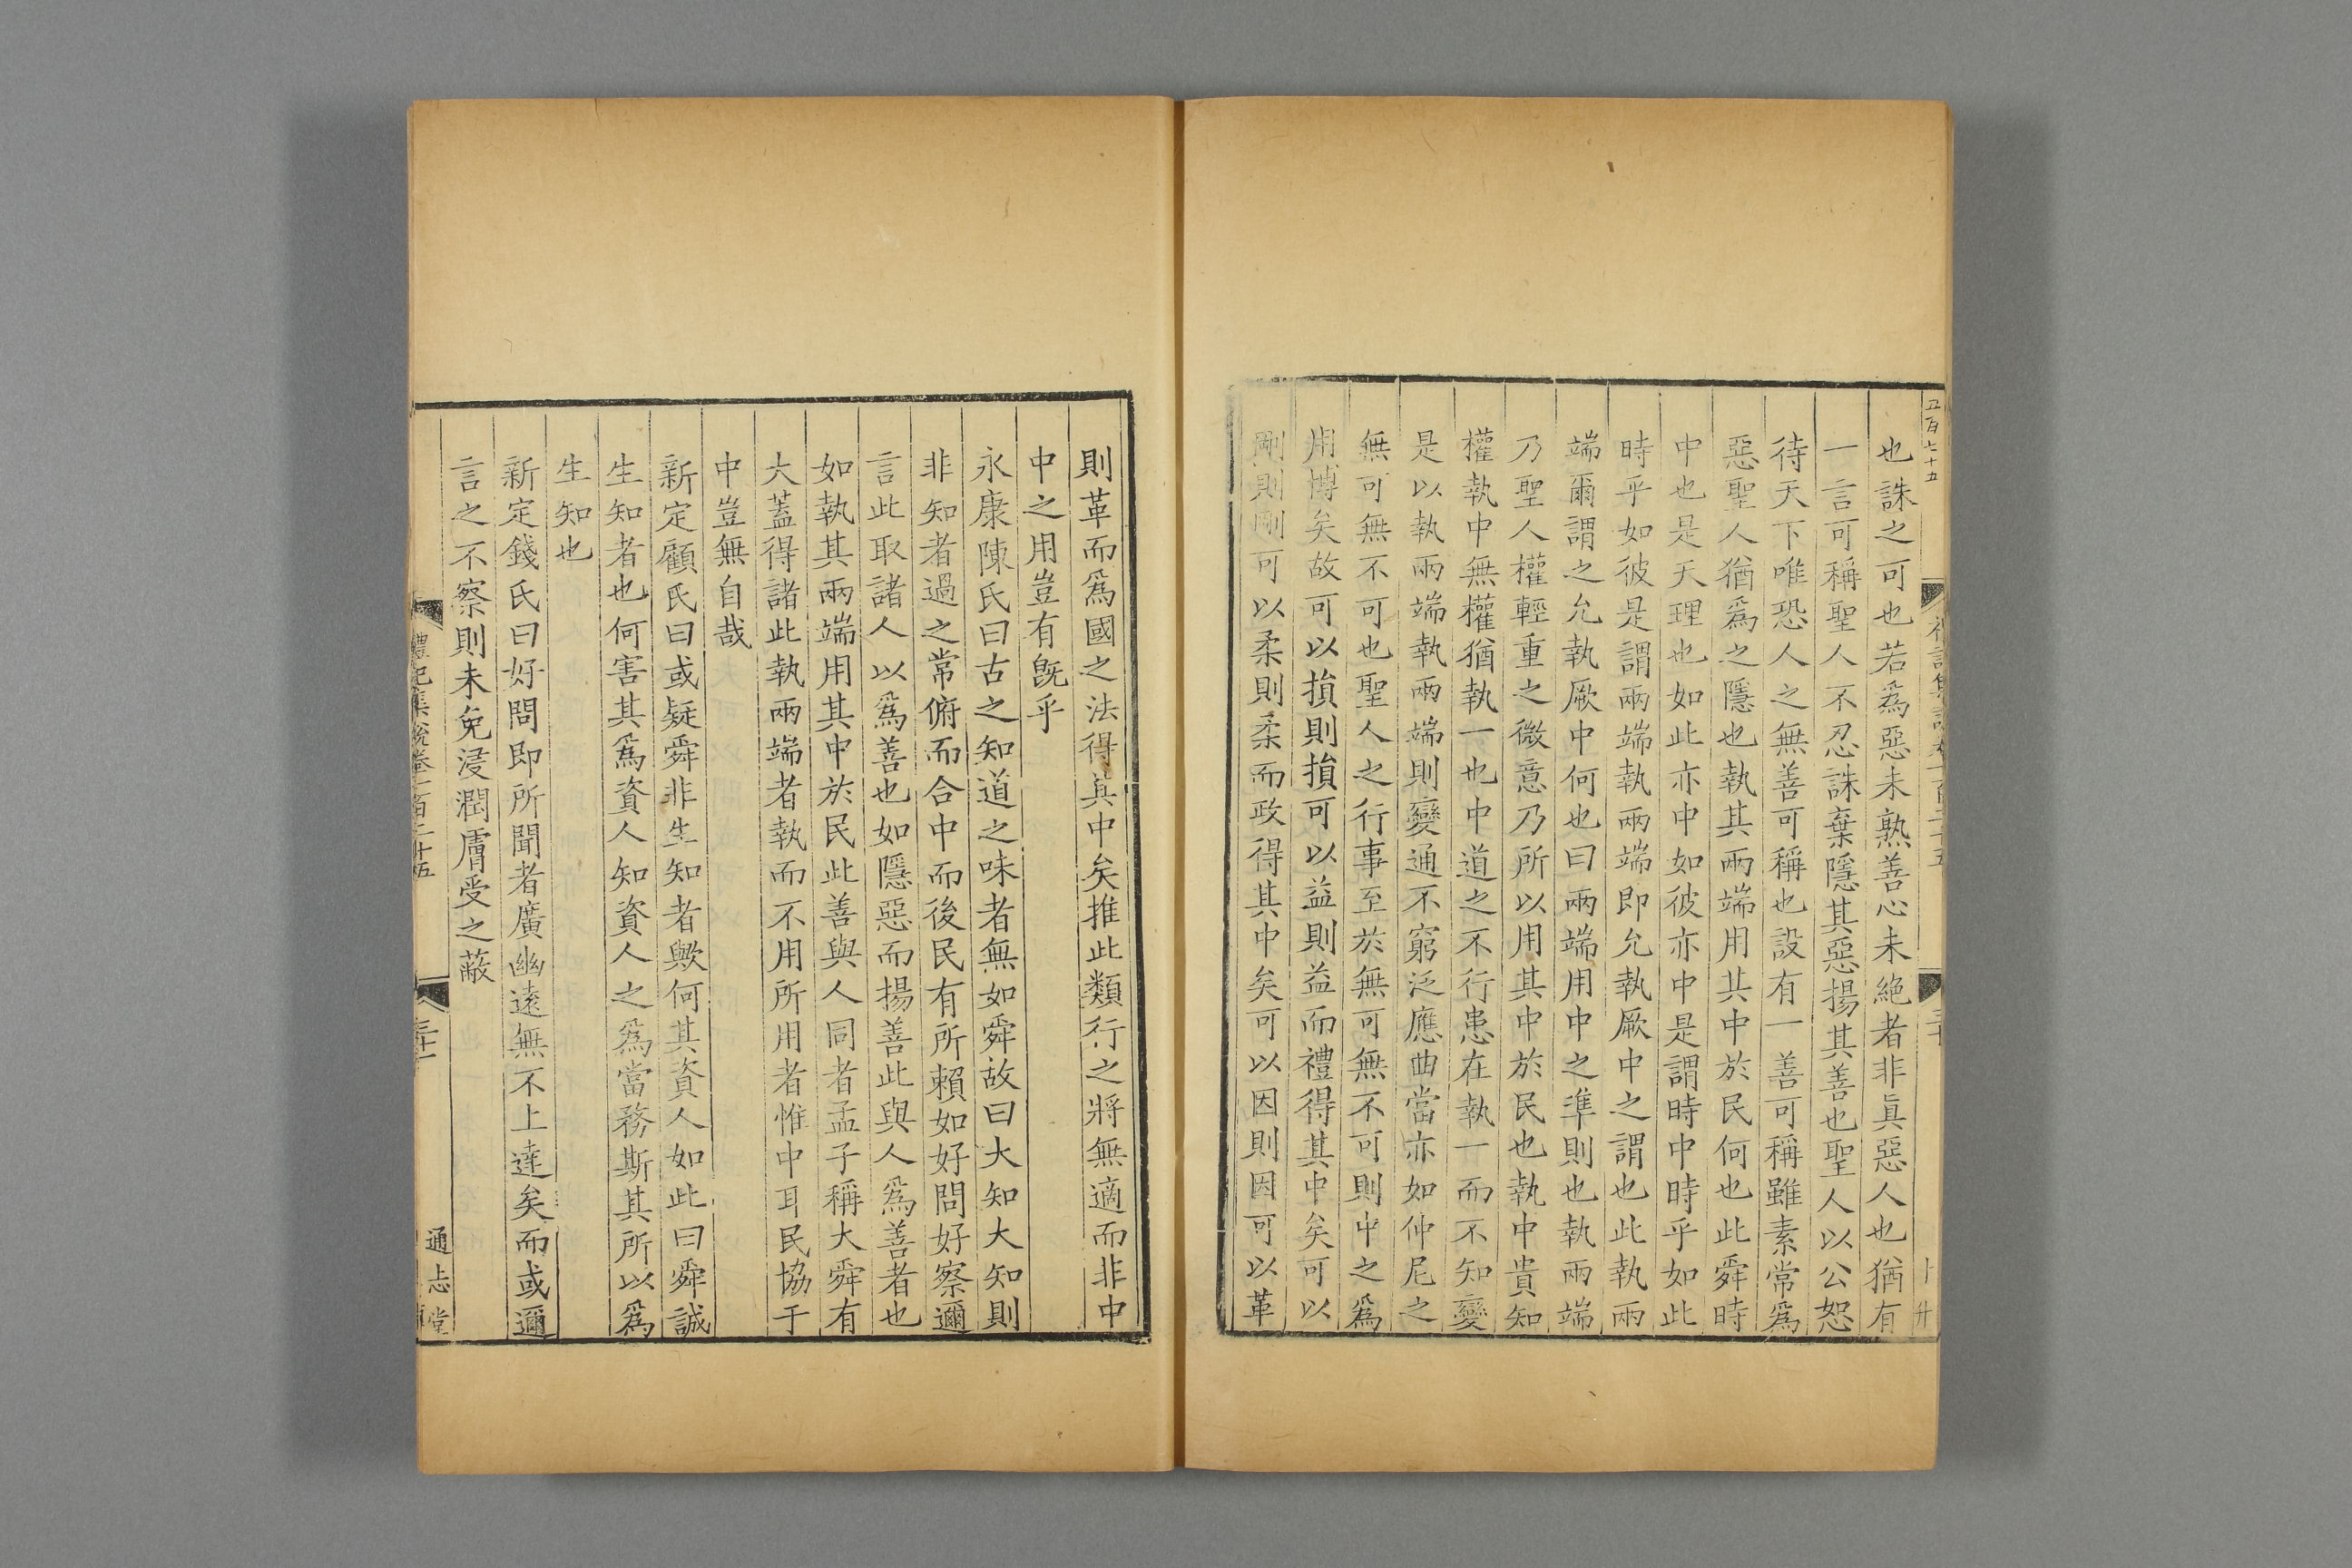 五百七十五
也誅之可也若爲惡未熟善心未絶者非眞惡人也猶有
一言可稱聖人不忍誅棄隱其惡揚其善也聖人以公恕
待天下唯恐人之無善可稱也設有一善可稱雖素常爲
惡聖人猶爲之隱也執其兩端用其中於民何也此舜時
中也是天理也如此亦中如彼亦中是謂時中時乎如此
時乎如彼是謂兩端執兩端即允執厥中之謂也此執兩
端爾謂之允執厥中何也曰兩端用中之準則也執兩端
乃聖人權輕重之微意乃所以用其中於民也執中貴知
權執中無權猶執一也中道之不行患在執一而不知變
是以執兩端執兩端則變通不窮泛應曲當亦如仲尼之
無可無不可也聖人之行事至於無可無不可則中之爲
用博矣故可以損則損可以益則益而禮得其中矣可以
剛則剛可以柔則柔而政得其中矣可以因則因可以革
則革而爲國之法得其中矣推此類行之將無適而非中
中之用豈有旣乎
永康陳氏曰古之知道之味者無如舜故曰大知大知則
非知者過之常俯而合中而後民有所賴如好問好察邇
言此取諸人以爲善也如隱惡而揚善此與人爲善者也
如執其兩端用其中於民此善與人同者孟子稱大舜有
大蓋得諸此執兩端者執而不用所用者惟中耳民協于
中豈無自哉
新定顧氏曰或疑舜非生知者歟何其資人如此曰舜誠
生知者也何害其爲資人知資人之爲當務斯其所以爲
生知也
新定錢氏曰好問即所聞者廣幽遠無不上達矣而或邇
言之不察則未免浸潤膚受之蔽
禮記集說卷一百二十五
三十一
通志堂